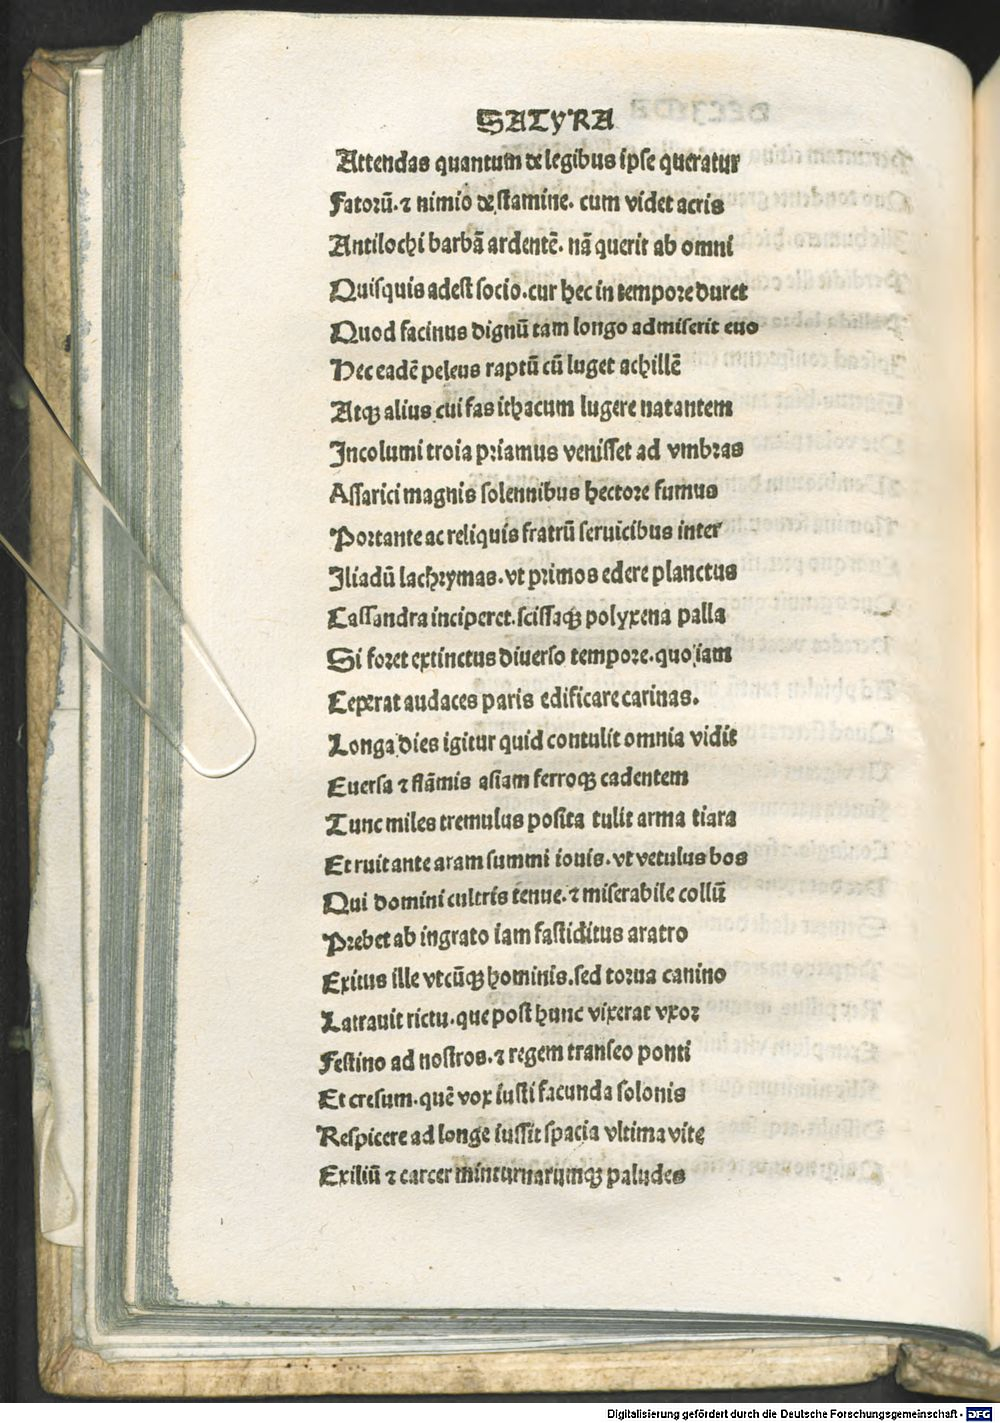 SATYRA
Attendas quantum de legibus ipse queratur
Fatorū. ⁊ nimio de stamine. cum videt acris
Antilochi barbā ardentē. nā querit ab omni
Quisquis adest socio. cur hec in tempore duret
Quod facinus dignū tam longo admiserit euo
Hec eadē peleus raptū cū luget achillē
Atqꝫ alius cui fas ithacum lugere natantem
Incolumi troia priamus venisset ad vmbras
Assarici magnis solennibus hectore fumus
Portante ac reliquis fratrū seruicibus inter
Iliadū lachrymas. vt primos edere planctus
Cassandra inciperet. scissaqꝫ polyxena palla
Si foret extinctus diuerso tempore. quo iam
Ceperat audaces paris edificare carinas.
Longa dies igitur quid contulit omnia vidit
Euersa ⁊ flāmis asiam ferroqꝫ cadentem
Tunc miles tremulus posita tulit arma tiara
Et ruit ante aram summi iouis. vt vetulus bos
Qui domini cultris tenue. ⁊ miserabile collū
Prebet ab ingrato iam fastiditus aratro
Exitus ille vtcūqꝫ hominis. sed torua canino
Latrauit rictu. que post hunc vixerat vxor
Festino ad nostros. ⁊ regem transeo ponti
Et cresum. quē vox iusti facunda solonis
Respicere ad longe iussit spacia vltima vitę
Exiliū ⁊ carcer minturnarumqꝫ paludes
Digitalisierung gefördert durch die Deutsche Forschungsgemeinschaft - DFG